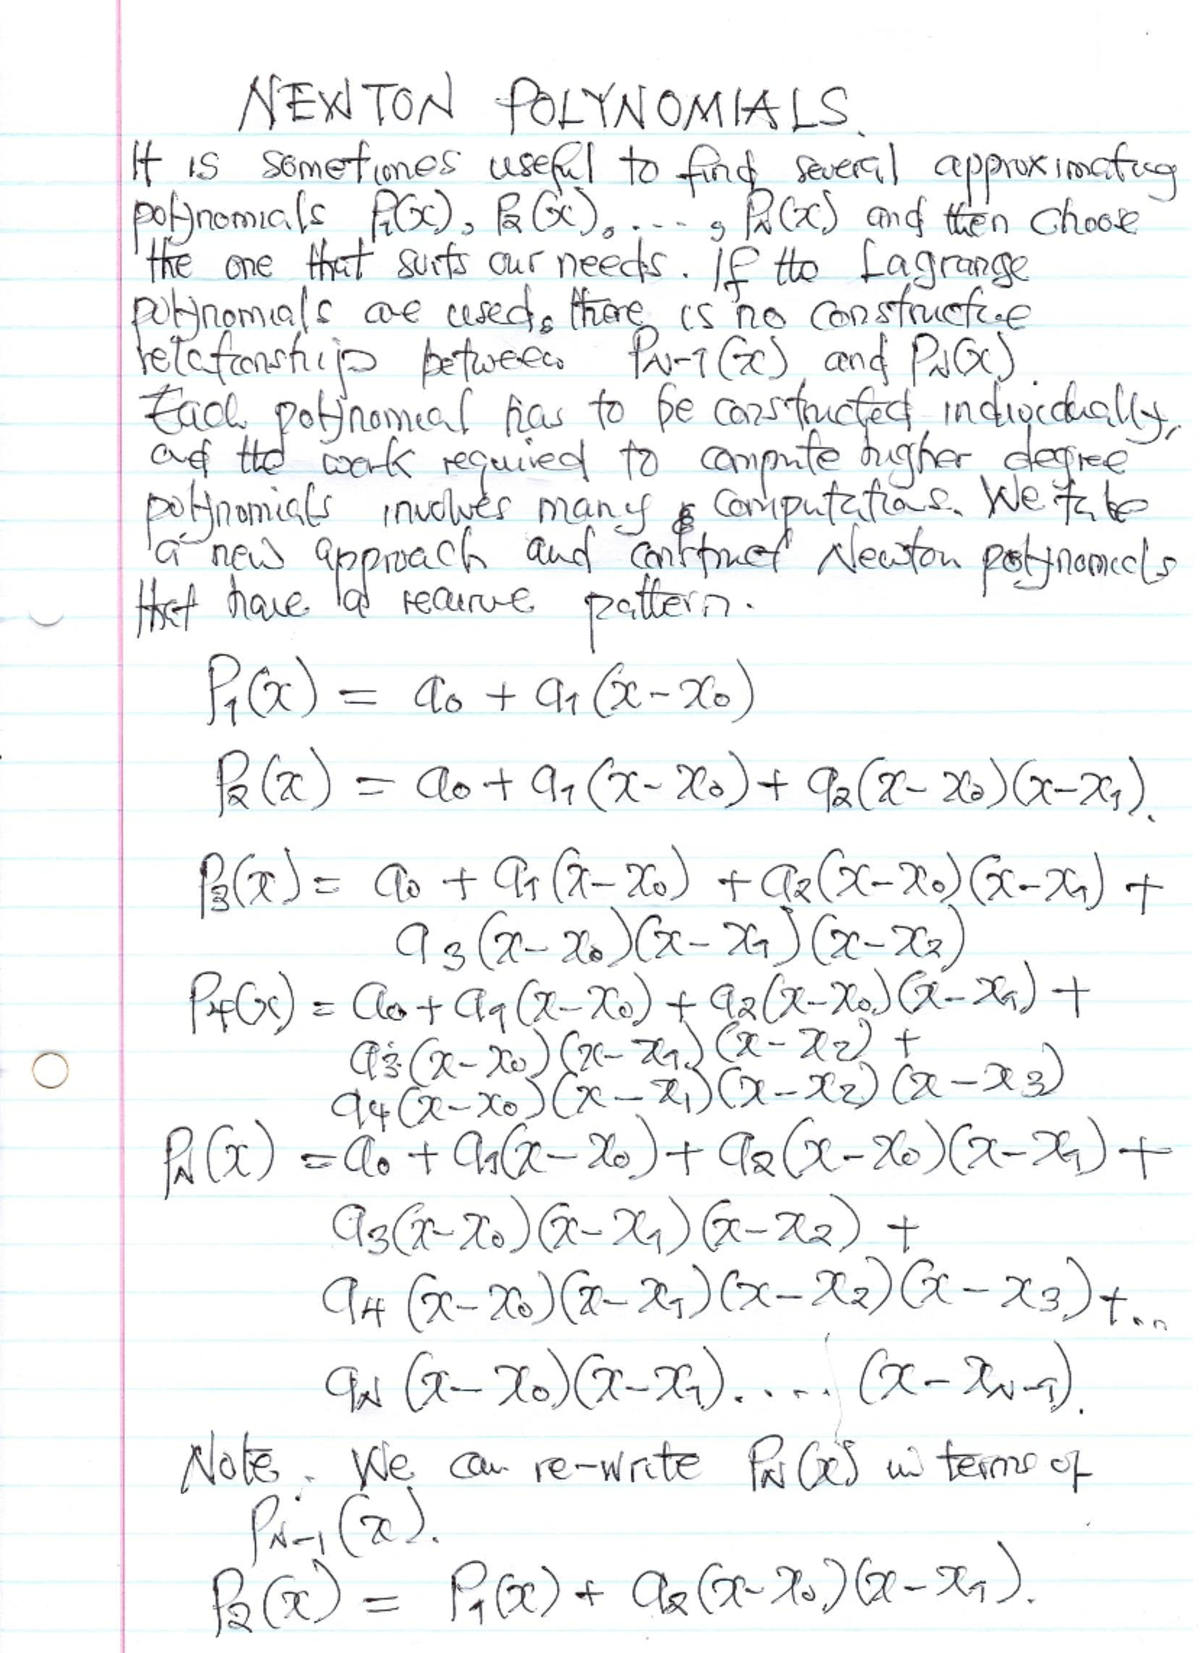 NEWTON POLYNOMIALS.
It is sometimes useful to find several approximating
polynomials P₁(x), P₂(x), ...., P_N(x) and then choose
the one that suits our needs. If the Lagrange
polynomials are used, there is no constructive
relationship between P_N-1(x) and P_N(x).
Each polynomial has to be constructed individually,
and the work required to compute higher degree
polynomials involves many computations. We take
a new approach and construct Newton polynomials
that have a recursive pattern.
P₁(x) = a₀ + a₁(x-x₀)
P₂(x) = a₀ + a₁(x-x₀) + a₂(x-x₀)(x-x₁).
P₃(x) = a₀ + a₁(x-x₀) + a₂(x-x₀)(x-x₁) +
a₃(x-x₀)(x-x₁)(x-x₂)
P₄(x) = a₀ + a₁(x-x₀) + a₂(x-x₀)(x-x₁) +
a₃(x-x₀)(x-x₁)(x-x₂) +
a₄(x-x₀)(x-x₁)(x-x₂)(x-x₃)
P_N(x) = a₀ + a₁(x-x₀) + a₂(x-x₀)(x-x₁) +
a₃(x-x₀)(x-x₁)(x-x₂) +
a₄(x-x₀)(x-x₁)(x-x₂)(x-x₃) + ...
a_N(x-x₀)(x-x₁)..... (x-x_N-1).
Note. We can re-write P_N(x) in terms of
P_N-1(x).
P₂(x) = P₁(x) + a₂(x-x₀)(x-x₁).